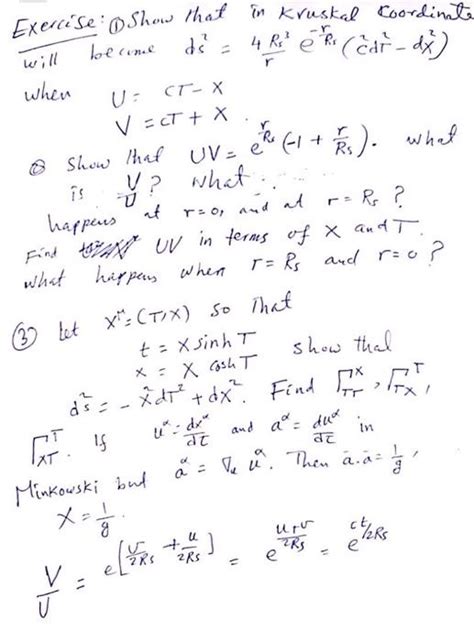 Exercise: ① Show that in Kruskal Coordinate
will become ds² = 4 Rs³/r e^-r/Rs (c²dT² - dX²)
when U = CT - X
V = CT + X.
② Show that UV = e^r/Rs (-1 + r/Rs). What
is V/U? What
happens at r=0, and at r = Rs?
Find UV in terms of X and T.
What happens when r = Rs and r=0?
③ Let X^μ = (T, X) so that
t = X sinh T
x = X cosh T show that
ds² = - X²dT² + dX². Find Γ^X_TT, Γ^T_TX,
Γ^T_XT. If u^α = dx^α/dτ and a^α = du^α/dτ in
Minkowski but a^α = ∇_u u^α. Then a.a = 1/g,
X = 1/g.
V/U = e[v/2Rs + u/2Rs] = e^u+v/2Rs = e^ct/2Rs